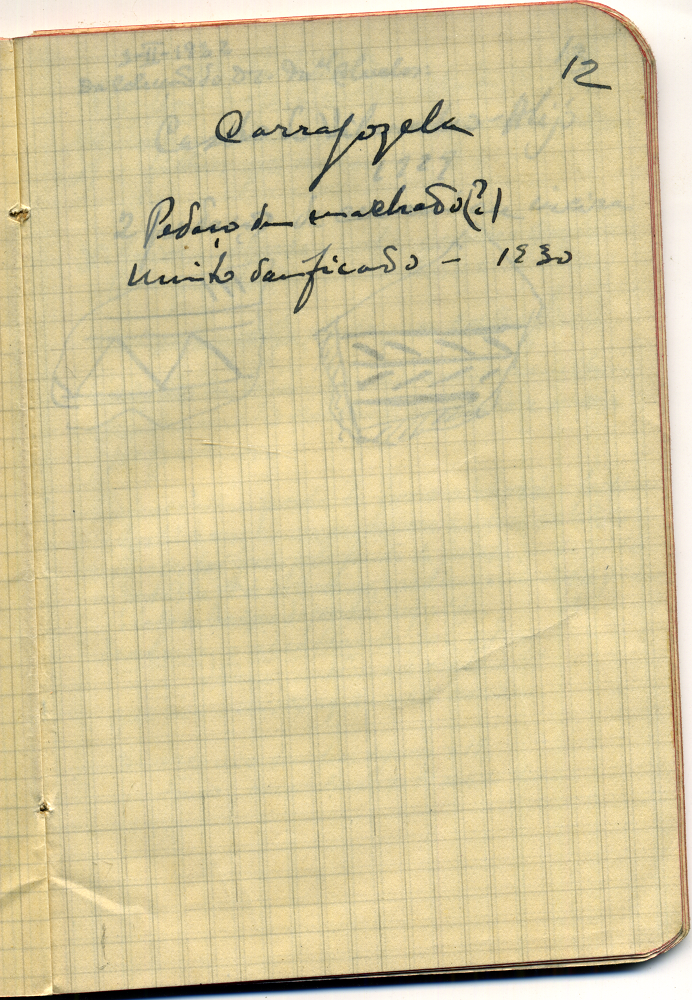 12
Carragozela
Pedaço dum machado (?)
Muito danificado – 1930